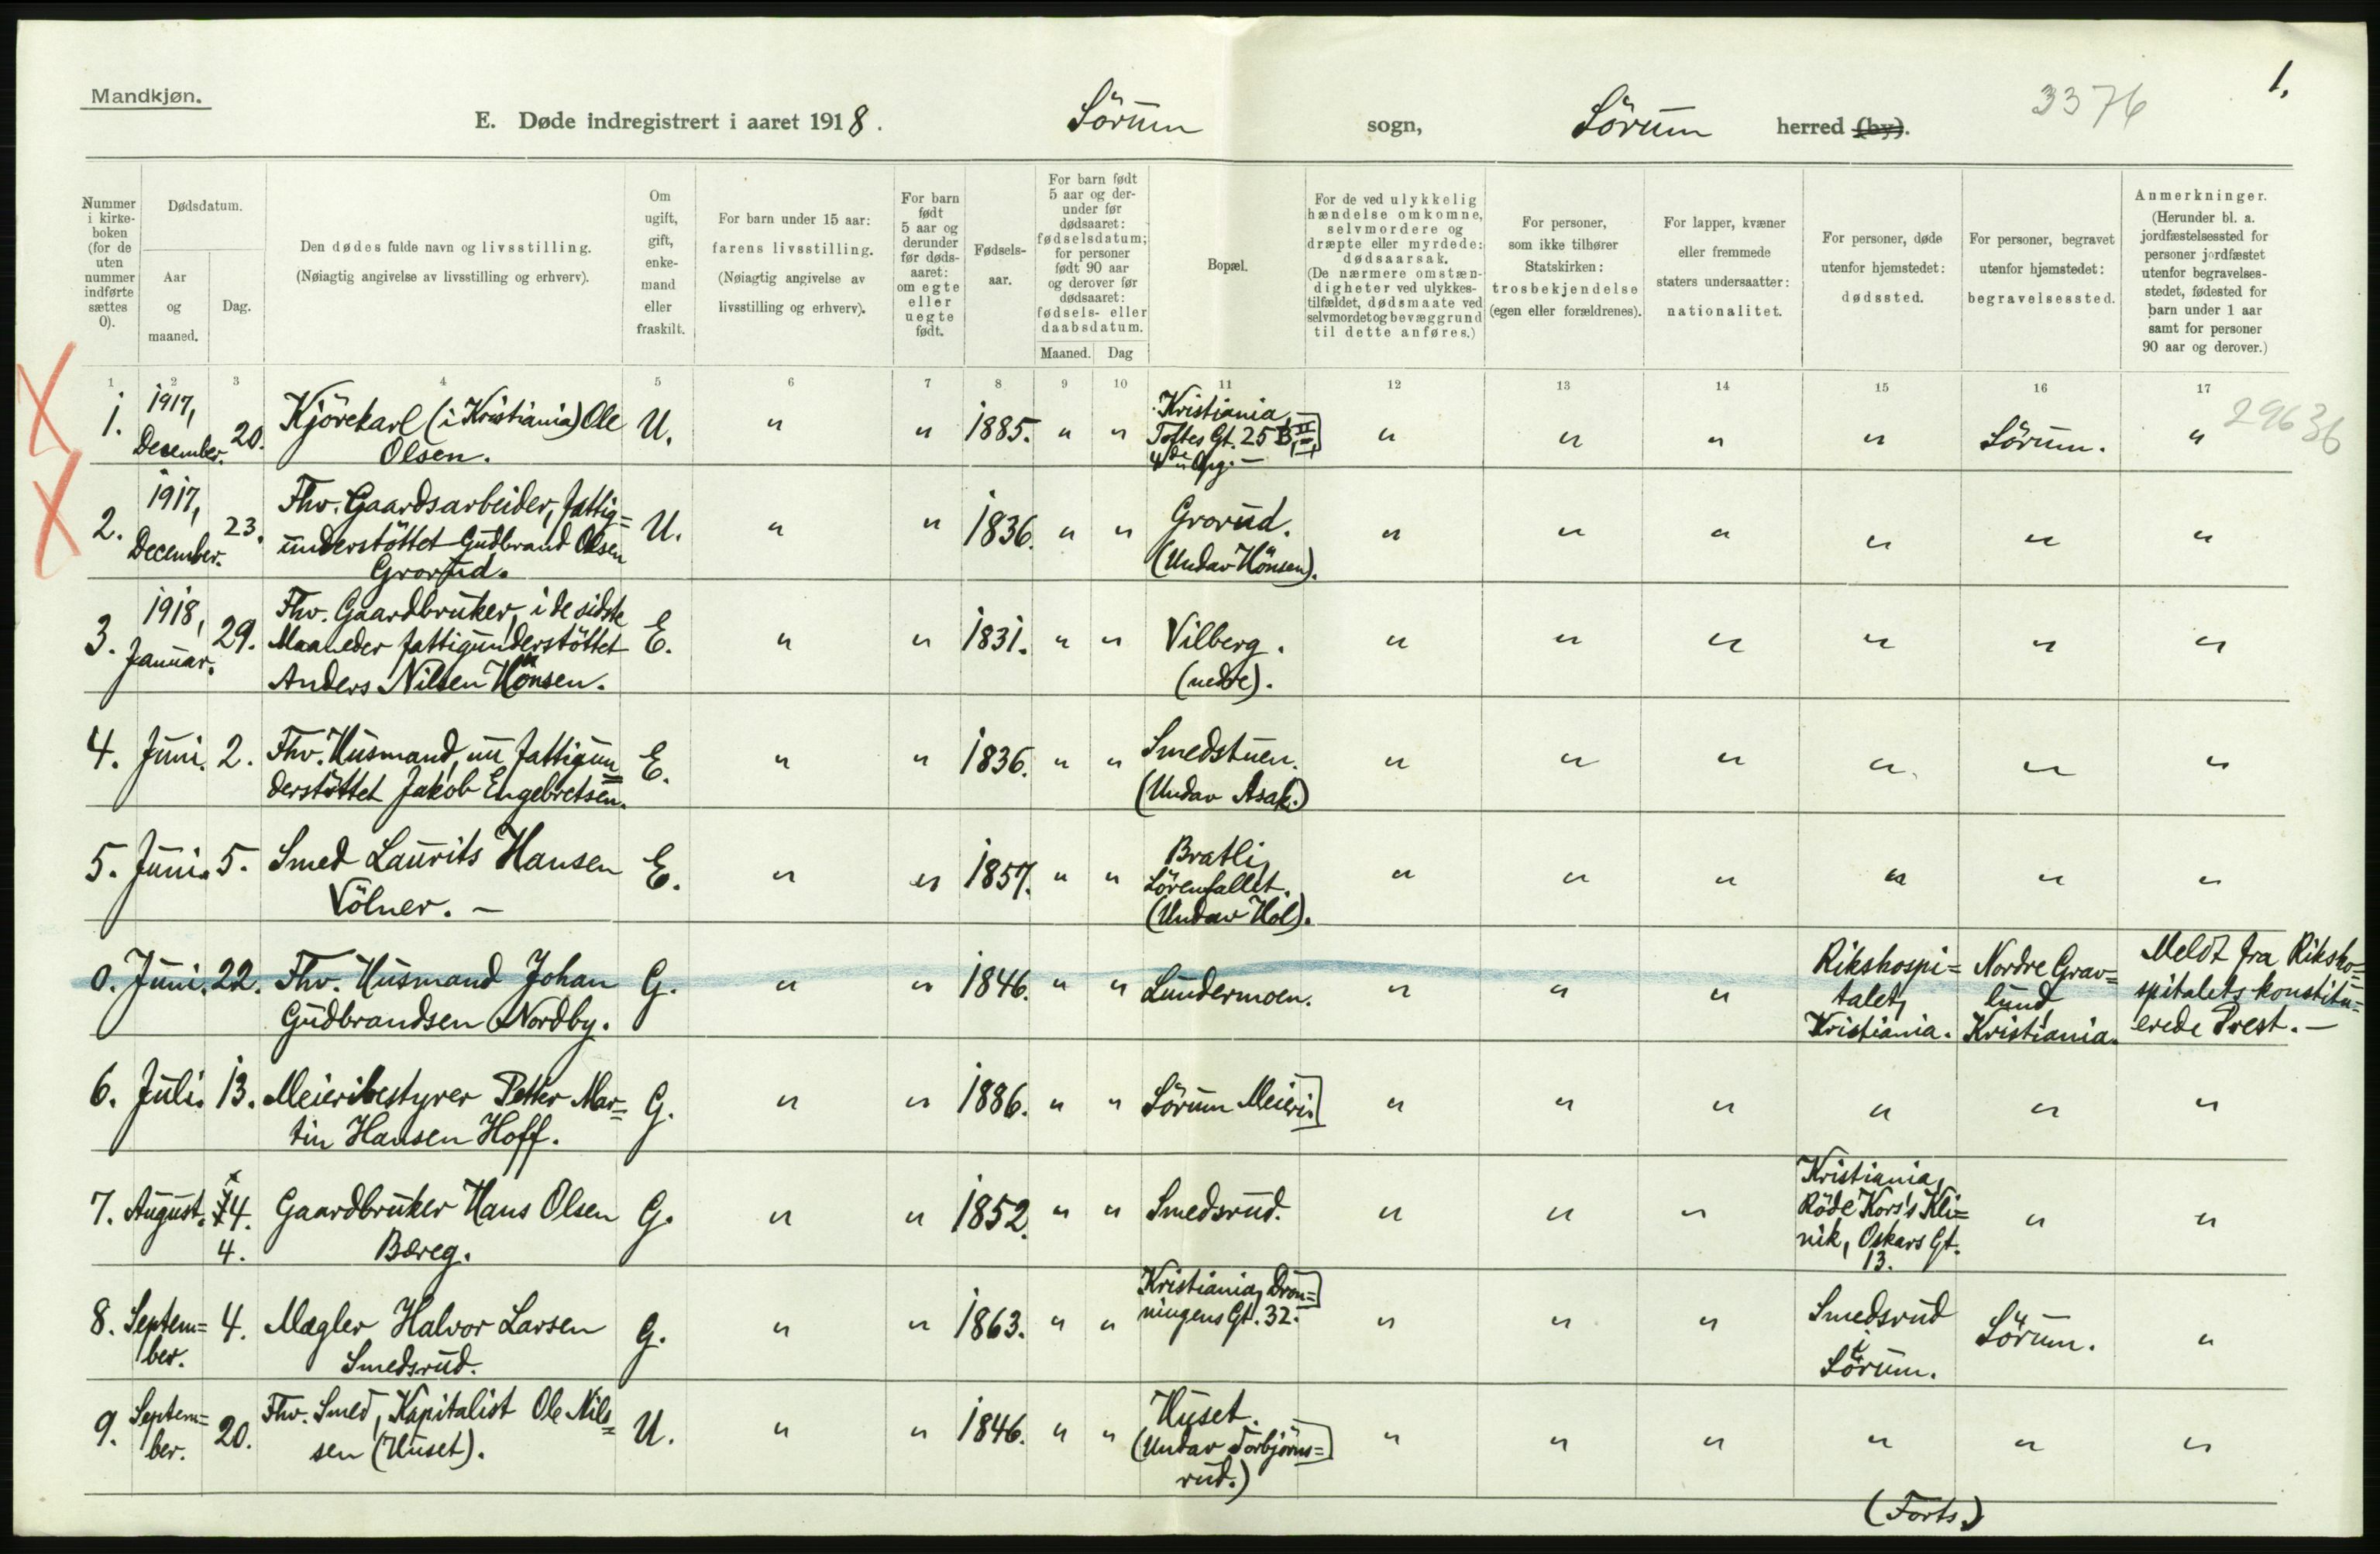 Mandkjøn.
1.
3376
E. Døde indregistrert i aaret 1918. Sörum sogn, Sörum herred (by).
Nummer
i kirke-
boken
(for de
uten
nummer
indførte
sættes
0).
Dødsdatum.
Aar
og
maaned.
Dag.
Den dødes fulde navn og livsstilling.
(Nøiagtig angivelse av livsstilling og erhverv).
Om
ugift,
gift,
enke-
mand
eller
fraskilt.
For barn under 15 aar:
farens livsstilling.
(Nøiagtig angivelse av
livsstilling og erhverv).
For barn
født
5 aar og
derunder
før døds-
aaret:
om egte
eller
uegte
født.
Fødsels-
aar.
For barn født
5 aar og der-
under før
dødsaaret:
fødselsdatum;
for personer
født 90 aar
og derover før
dødsaaret:
fødsels- eller
daabsdatum.
Maaned. Dag
Bopæl.
For de ved ulykkelig
hændelse omkomne,
selvmordere og
dræpte eller myrdede:
dødsaarsak.
(De nærmere omstæn-
digheter ved ulykkes-
tilfældet, dødsmaate ved
selvmordet og bevæggrund
til dette anføres.)
For personer,
som ikke tilhører
Statskirken:
trosbekjendelse
(egen eller forældrenes).
For lapper, kvæner
eller fremmede
staters undersaatter:
nationalitet.
For personer, døde
utenfor hjemstedet:
dødssted.
For personer, begravet
utenfor hjemstedet:
begravelsessted.
Anmerkninger.
(Herunder bl. a.
jordfæstelsessted for
personer jordfæstet
utenfor begravelses-
stedet, fødested for
barn under 1 aar
samt for personer
90 aar og derover.)
1 2 3 4 5 6 7 8 9 10 11 12 13 14 15 16 17
1.
1917,
December.
20.
Kjörekarl (i Kristiania) Ole
Olsen.
U. " " 1885. " "
Kristiania,
Toftes Gt. 25 B, II
4de Opg. –
" " " " Sörum. "
29636
2.
1917,
December.
23.
Fhv. Gaardsarbeider, fattig=
understöttet Gudbrand Olsen
Grorud.
U. " " 1836. " "
Grorud.
(Undar Hönsen).
" " " " " "
3.
1918,
Januar.
29.
Fhv. Gaardbruker, i de sidste
Maaneder fattigunderstöttet
Anders Nilsen Hönsen.
E. " " 1831. " "
Vilberg.
(nedre).
" " " " " "
4. Juni. 2.
Fhv. Husmand, nu fattigun=
derstöttet Jakob Engebretsen.
E. " " 1836. " "
Smedstuen.
(Undar Asak.)
" " " " " "
5. Juni. 5.
Smed Laurits Hansen
Völner. –
E. " " 1857. " "
Bratli,
Sörenfallet.
(Undar Hol).
" " " " " "
0. Juni. 22.
Fhv. Husmand Johan
Gudbrandsen Nordby.
G. " " 1846. " " Lundermoen. " " "
Rikshospi=
talet,
Kristiania.
Nordre Grav=
lund,
Kristiania.
Meldt fra Riksho=
spitalets konstitu=
erede Prest. –
6. Juli. 13.
Meieribestyrer Petter Mar=
tin Hansen Hoff.
G. " " 1886. " " Sörum Meieri. " " " " " "
7. August. 4.
4.
Gaardbruker Hans Olsen
Bæreg.
G. " " 1852. " " Smedsrud. " " "
Kristiania,
Röde Kors's Kli=
nik, Oskars Gt.
13.
" "
8.
Septem=
ber.
4.
Mægler Halvor Larsen
Smedsrud.
G. " " 1863. " "
Kristiania, Dron=
ningens Gt. 32.
" " "
Smedsrud
i
Sörum.
Sörum. "
9.
Septem=
ber.
20.
Fhv. Smed, Kapitalist Ole Nils=
sen (Huset).
U. " " 1846. " "
Huset.
(Undar Torbjörns=
rud.)
" " " " " "
(Forts.)